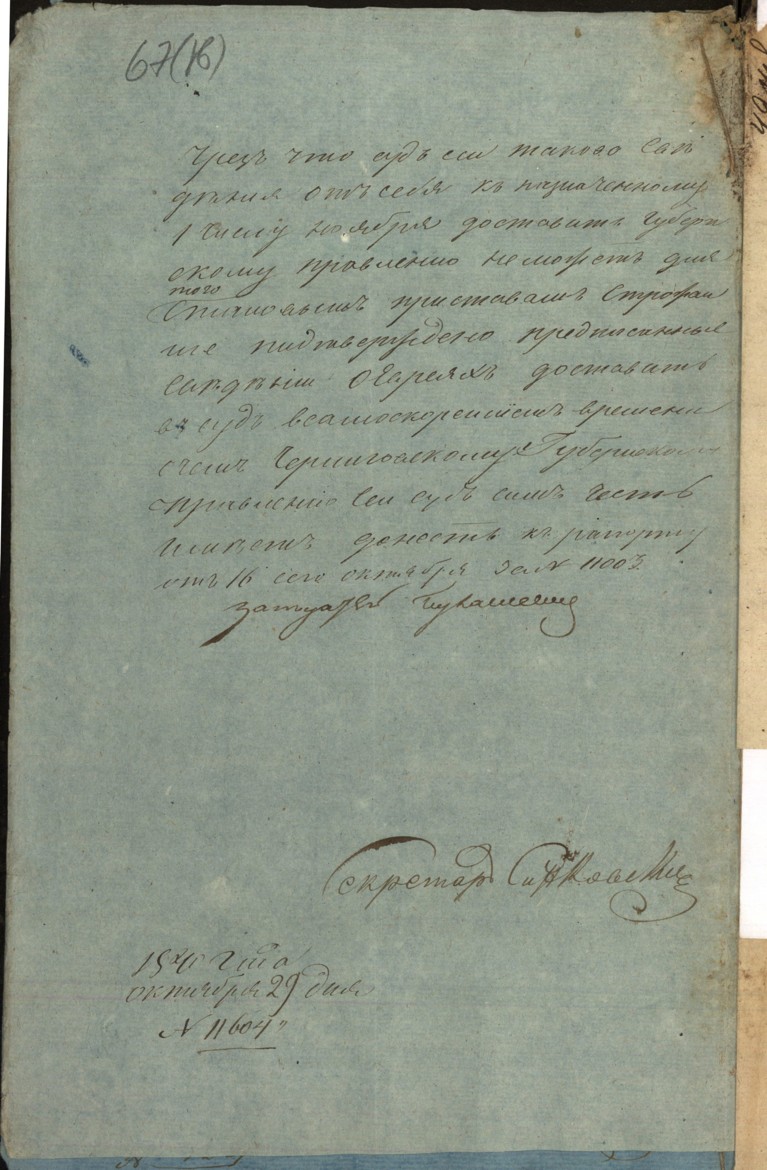 67(16)
чрезъ что судъ сей таковаго свѣ
дѣнія отъ себя къ назначенному
1 числу ноября доставить Губерн
скому правленію не можетъ для
того
Становымъ приставамъ строжай
ше подтверждено предписанные
свѣдѣніи о Евреяхъ доставить
въ судъ в самоскорейшемъ времени
о чемъ Черниговскому Губернскому
правленію сей судъ симъ честь
имѣетъ донесть къ рапорту
отъ 16 сего октября за N 11003.
Секретарь
октября 29 дня
N 11604